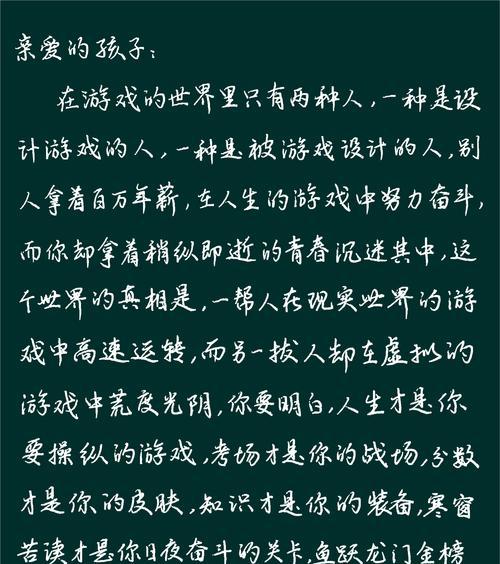 亲爱的孩子：
在游戏的世界里只有两种人，一种是设
计游戏的人，一种是被游戏设计的人，别
人拿着百万年薪，在人生的游戏中努力奋斗，
而你却拿着稍纵即逝的青春沉迷其中，这
个世界的真相是，一帮人在现实世界的游
戏中高速运转，而另一拨人却在虚拟的
游戏中荒度光阴，你要明白，人生才是你
要操纵的游戏，考场才是你的战场，分数
才是你的皮肤，知识才是你的装备，寒窗
苦读才是你日夜奋斗的关卡，鱼跃龙门金榜